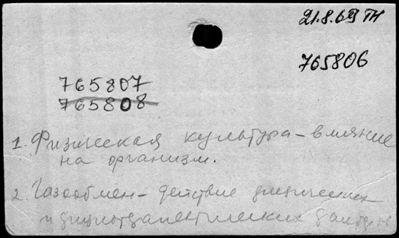 21.8.69 ТН
765806
765807
765808
1. Физическая культура – влияние
на организм.
2. Газообмен – действие физических
и физиотерапевтических факторов